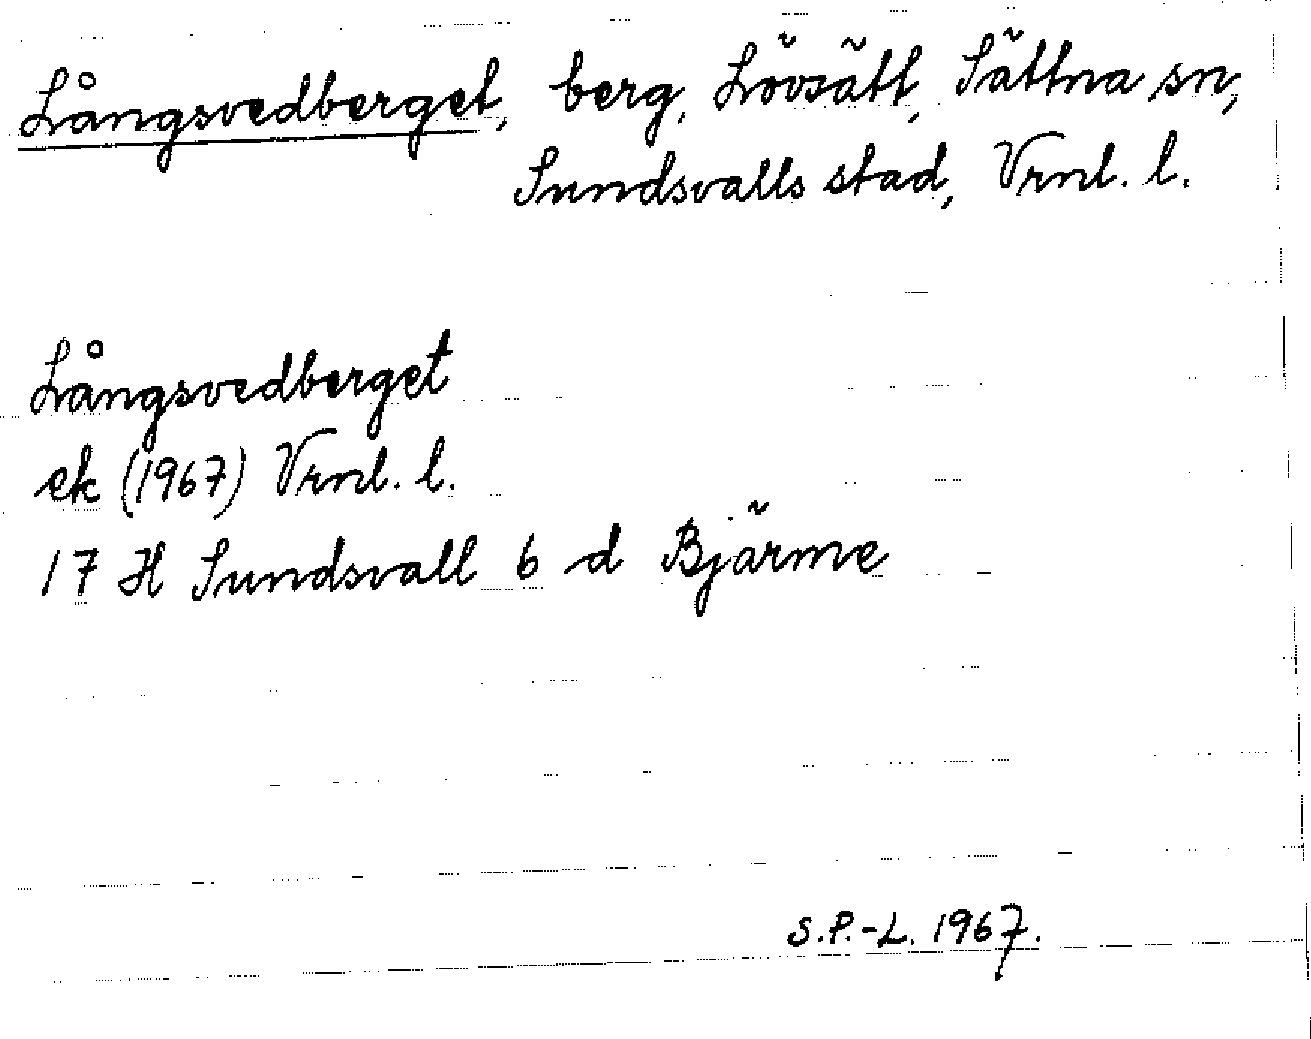 Långsvedberget, berg, Lövsätt, Sättna sn,
Sundsvalls stad, Vrnl. l.
Långsvedberget
ek (1967) Vrnl. l.
17 H Sundsvall 6 d Bjärme
S.P.-L. 1967.